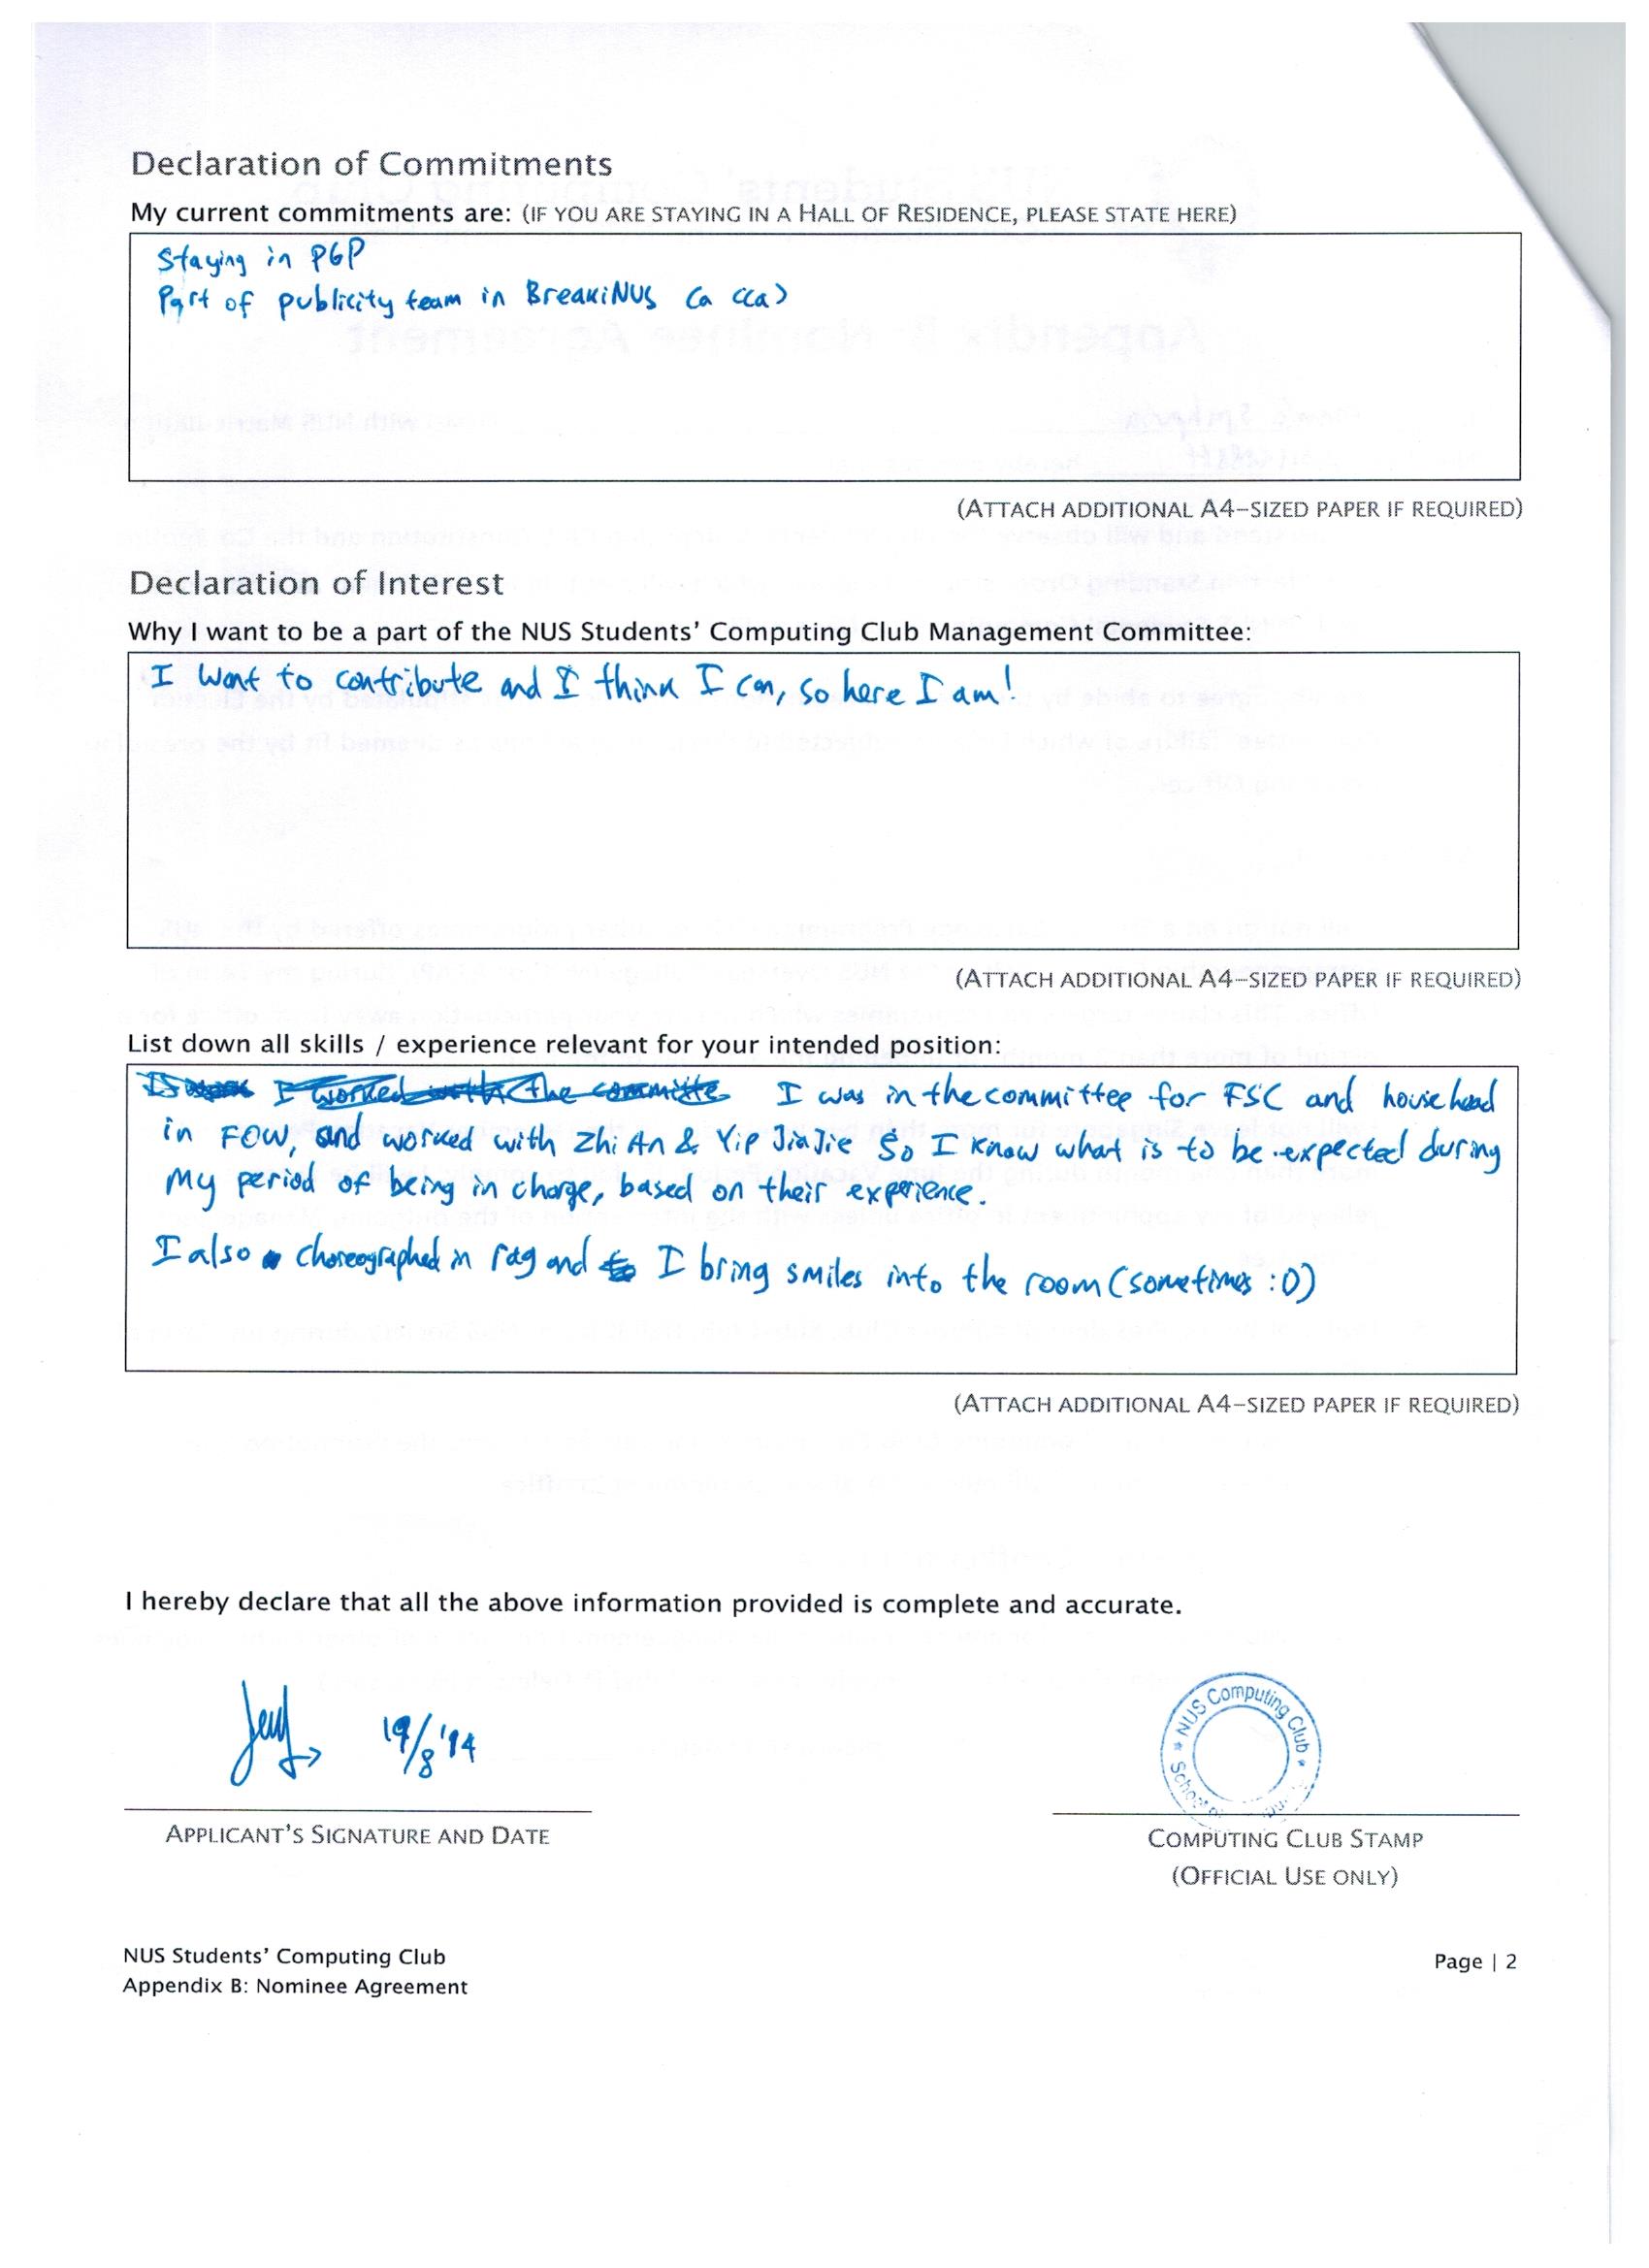 Declaration of Commitments
My current commitments are: (IF YOU ARE STAYING IN A HALL OF RESIDENCE, PLEASE STATE HERE)
Staying in PGP
Part of publicity team in BreakiNUS (a cca)
(ATTACH ADDITIONAL A4-SIZED PAPER IF REQUIRED)
Declaration of Interest
Why I want to be a part of the NUS Students' Computing Club Management Committee:
I want to contribute and I think I can, so here I am!
(ATTACH ADDITIONAL A4-SIZED PAPER IF REQUIRED)
List down all skills / experience relevant for your intended position:
I worked with the committe I was in the committee for FSC and house head
in FOW, and worked with Zhi An & Yip JiaJie so I know what is to be expected during
My period of being in charge, based on their experience.
I also choreographed in rag and I bring smiles into the room (sometimes :D)
(ATTACH ADDITIONAL A4-SIZED PAPER IF REQUIRED)
I hereby declare that all the above information provided is complete and accurate.
19/8 '14
NUS Computing Club
School
APPLICANT'S SIGNATURE AND DATE
COMPUTING CLUB STAMP
(OFFICIAL USE ONLY)
NUS Students' Computing Club
Appendix B: Nominee Agreement
Page | 2